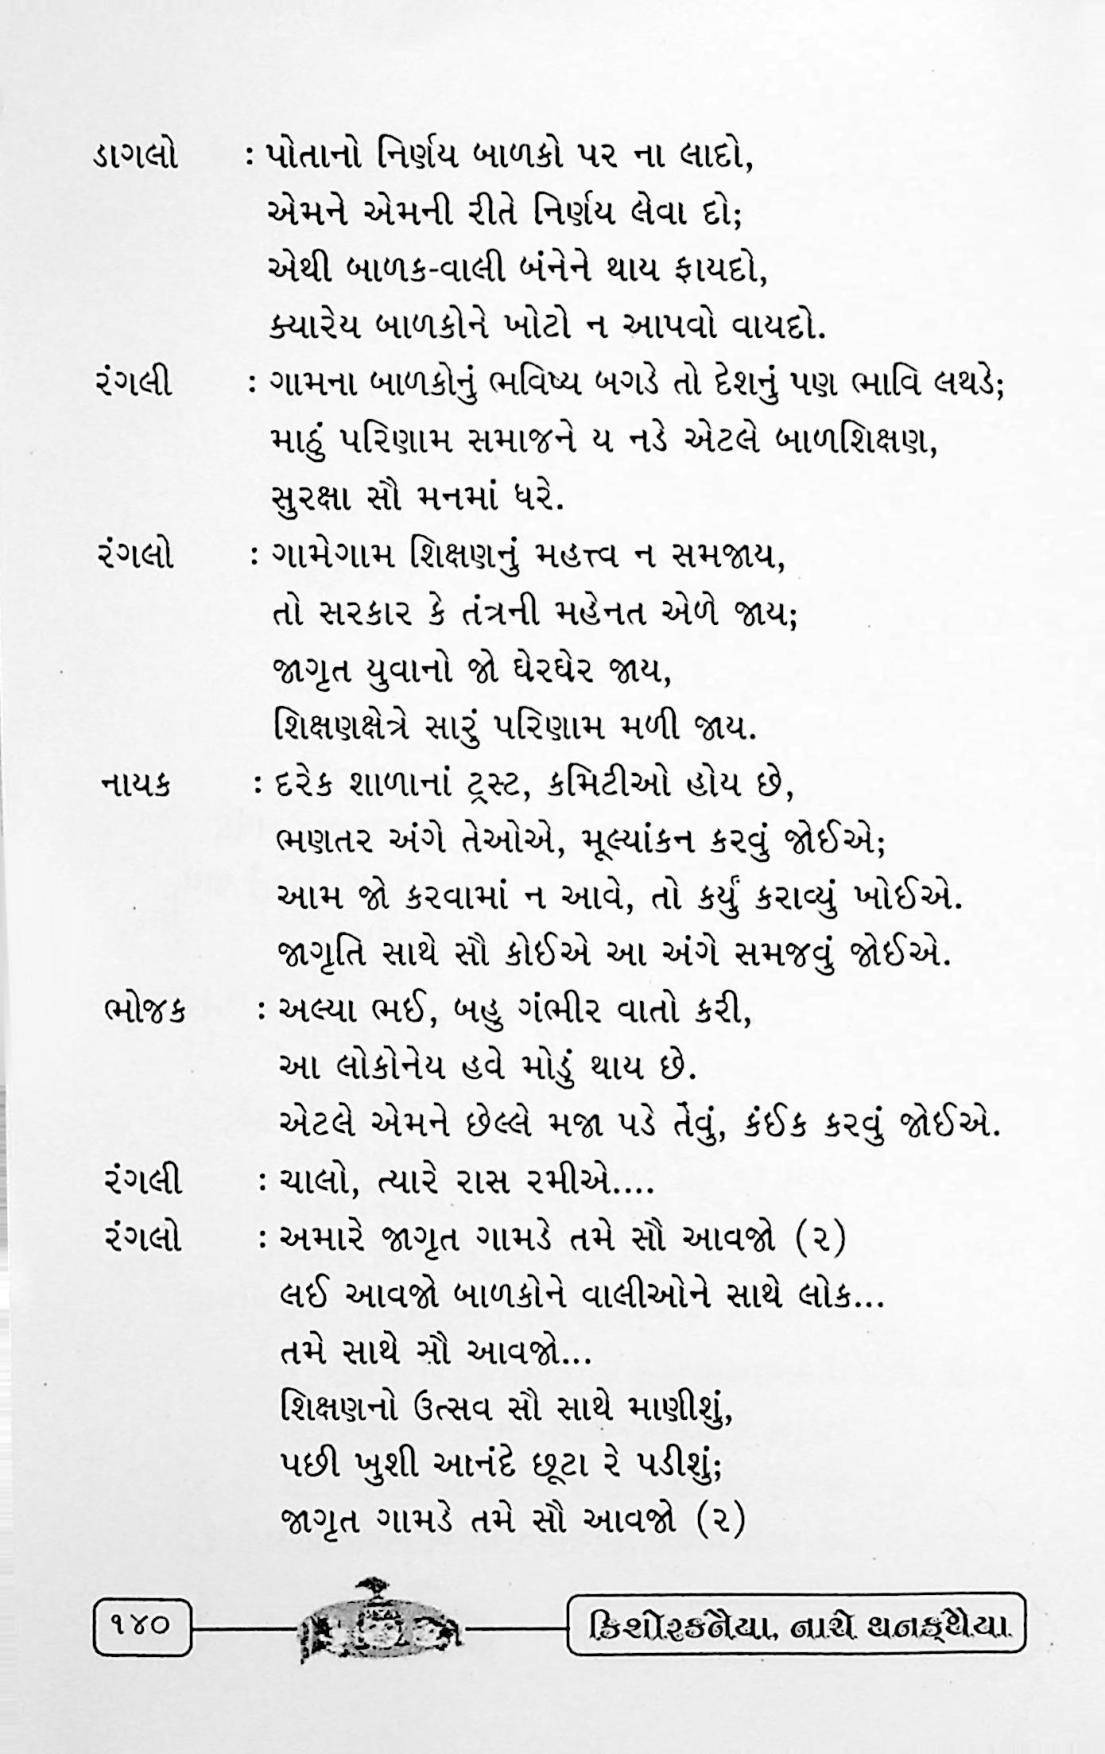 ડાગલો : પોતાનો નિર્ણય બાળકો પર ના લાદો,
એમને એમની રીતે નિર્ણય લેવા દો;
એથી બાળક-વાલી બંનેને થાય ફાયદો,
ક્યારેય બાળકોને ખોટો ન આપવો વાયદો.
રંગલી : ગામના બાળકોનું ભવિષ્ય બગડે તો દેશનું પણ ભાવિ લથડે;
માઠું પરિણામ સમાજને ય નડે એટલે બાળશિક્ષણ,
સુરક્ષા સૌ મનમાં ધરે.
રંગલો : ગામેગામ શિક્ષણનું મહત્ત્વ ન સમજાય,
તો સરકાર કે તંત્રની મહેનત એળે જાય;
જાગૃત યુવાનો જો ઘેરઘેર જાય,
શિક્ષણક્ષેત્રે સારું પરિણામ મળી જાય.
નાયક : દરેક શાળાનાં ટ્રસ્ટ, કમિટીઓ હોય છે,
ભણતર અંગે તેઓએ, મૂલ્યાંકન કરવું જોઈએ;
આમ જો કરવામાં ન આવે, તો કર્યું કરાવ્યું ખોઈએ.
જાગૃતિ સાથે સૌ કોઈએ આ અંગે સમજવું જોઈએ.
ભોજક : અલ્યા ભઈ, બહુ ગંભીર વાતો કરી,
આ લોકોનેય હવે મોડું થાય છે.
એટલે એમને છેલ્લે મજા પડે તેવું, કંઈક કરવું જોઈએ.
રંગલી : ચાલો, ત્યારે રાસ રમીએ....
રંગલો : અમારે જાગૃત ગામડે તમે સૌ આવજો (૨)
લઈ આવજો બાળકોને વાલીઓને સાથે લોક...
તમે સાથે સૌ આવજો...
શિક્ષણનો ઉત્સવ સૌ સાથે માણીશું,
પછી ખુશી આનંદે છૂટા રે પડીશું;
જાગૃત ગામડે તમે સૌ આવજો (૨)
૧૪૦ કિશોરકનૈયા, નાચે થનકથૈયા